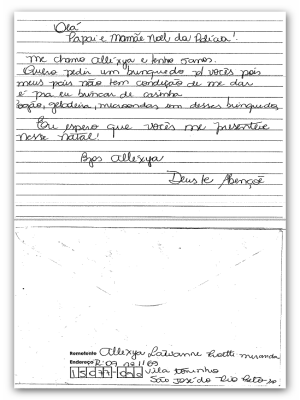 Olá
Papai e Mamãe Noel da Polícia!
Me chamo Allexya e tenho 5 anos.
Quero pedir um brinquedo p/ vocês pois
meus pais não tem condição de me dar
é pra eu brincar de casinha
fogão, geladeira, microondas um desses brinquedos
Eu espero que vocês me presenteie
nesse natal!
Bjos Allexya
Deus te Abençõe
Remetente Allexya
Endereço R:09 nº 1169
Vila Toninho
São José do Rio Preto